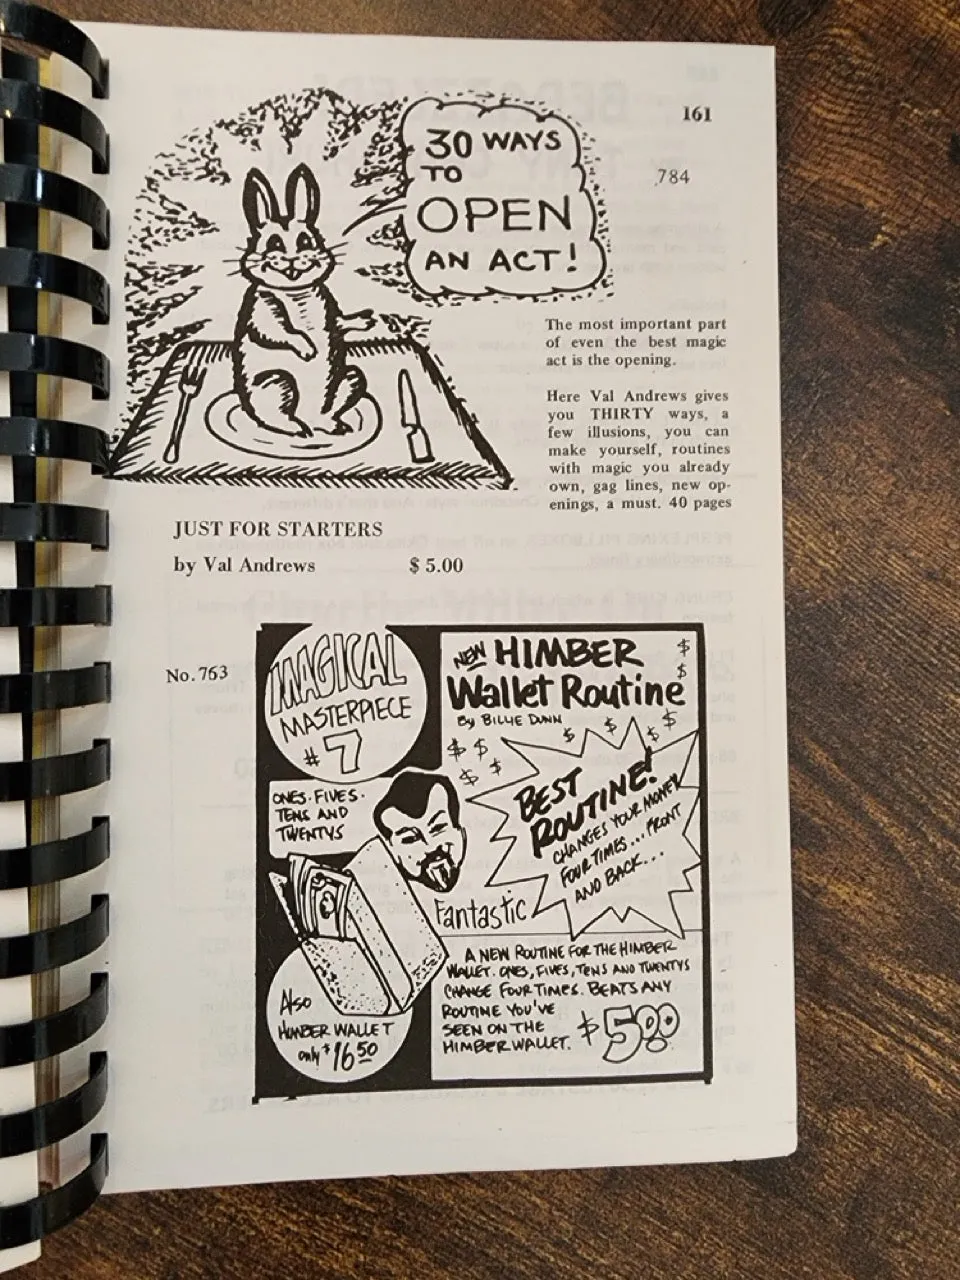 161
784
30 WAYS
TO
OPEN
AN ACT!
The most important part
of even the best magic
act is the opening.
Here Val Andrews gives
you THIRTY ways, a
few illusions, you can
make yourself, routines
with magic you already
own, gag lines, new op-
enings, a must. 40 pages
JUST FOR STARTERS
by Val Andrews $ 5.00
No. 763
MAGICAL
MASTERPIECE
# 7
NEW HIMBER
Wallet Routine
By BILLIE DUNN
ONES. FIVES.
TENS AND
TWENTYS
BEST
ROUTINE!
CHANGES YOUR MONEY
FOUR TIMES... FRONT
AND BACK...
Fantastic
A NEW ROUTINE FOR THE HIMBER
WALLET. ONES, FIVES, TENS AND TWENTYS
CHANGE FOUR TIMES. BEATS ANY
ROUTINE YOU'VE
SEEN ON THE
HIMBER WALLET.
$5.00
Also
HIMBER WALLET
only $16.50